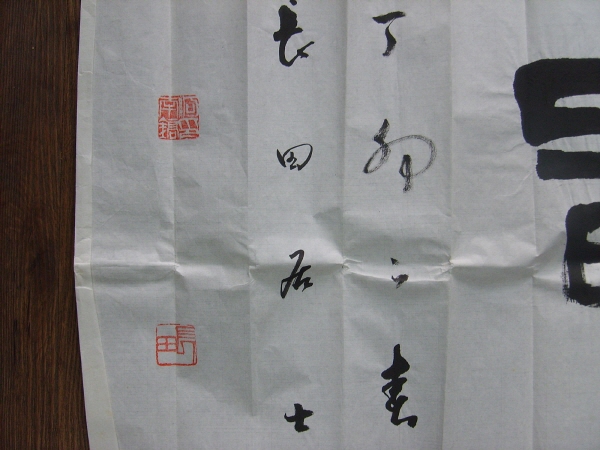 丁卯之春
長田居士
長田